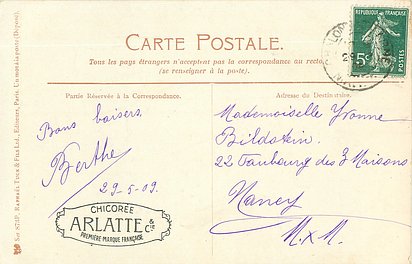 CARTE POSTALE.
Tous les pays étrangers n'acceptent pas la correspondance au recto
(se renseigner à la poste).
Partie Réservée à la Correspondance.
Adresse du Destinataire.
5c
Bons baisers,
Berthe
29-5-09.
CHICORÉE
ARLATTE & Cie
PREMIÈRE MARQUE FRANÇAISE
Mademoiselle Yvonne
Bildstein
22 Faubourg des 3 Maisons
Nancy
M. & M.
RAPHAEL TUCK & FILS Ltd., Editeurs, Paris.